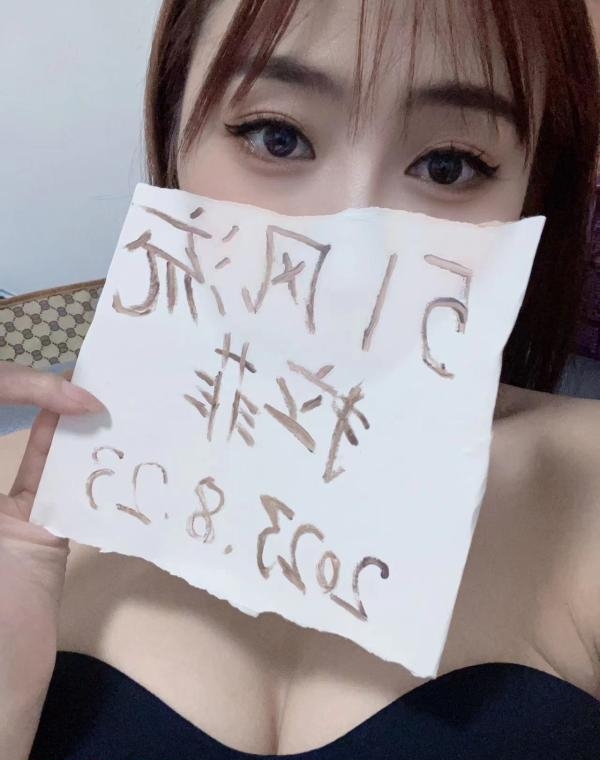 51风流
拉菲
2023.8.23